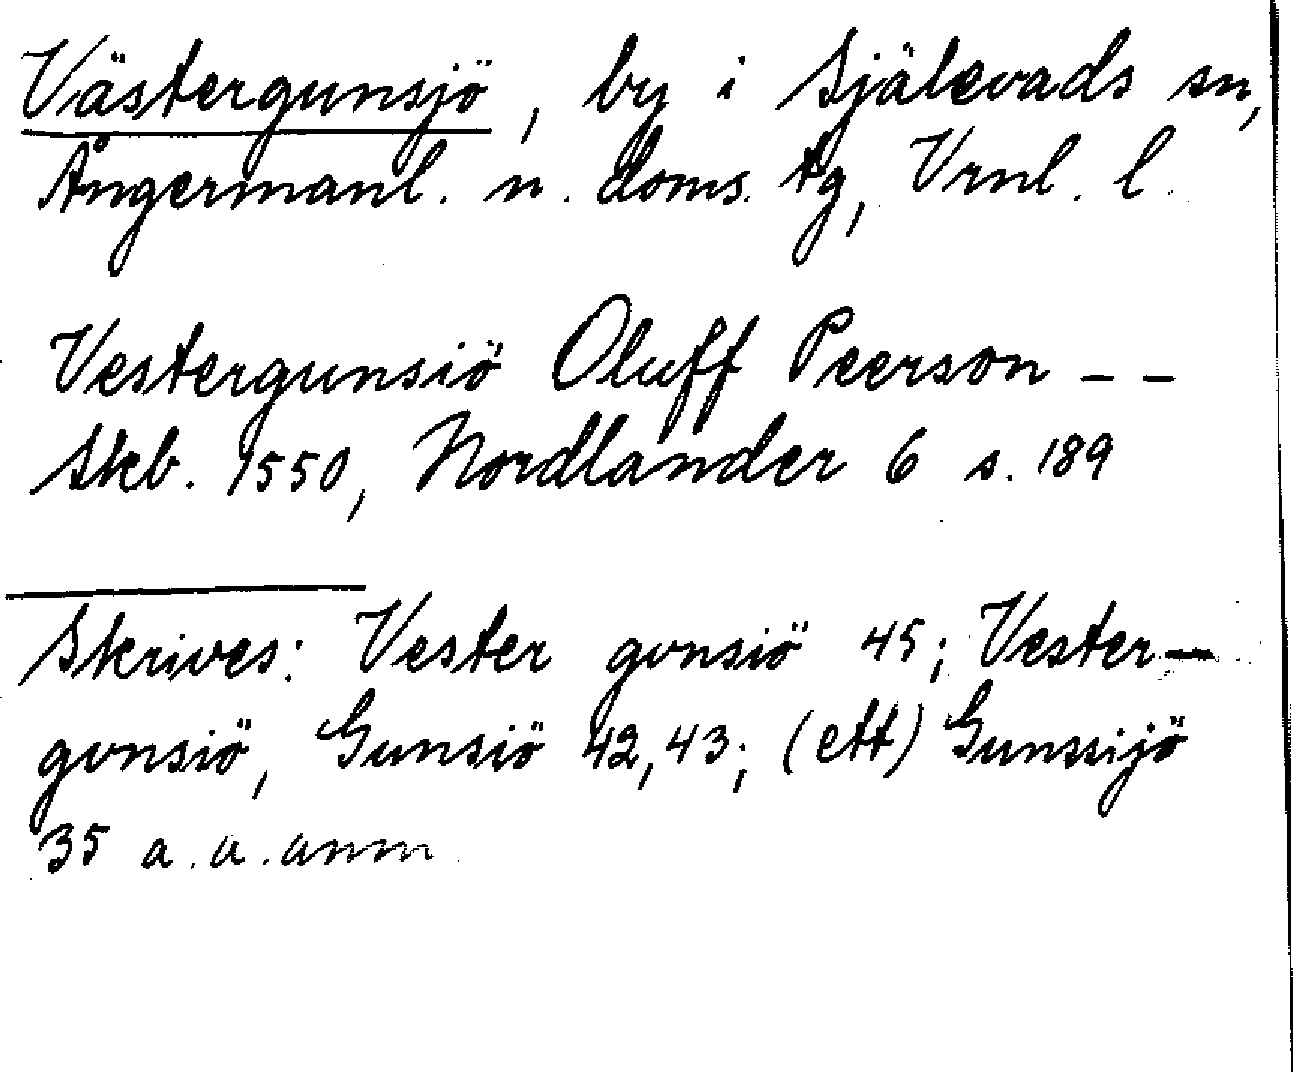 Västergunsjö, by i Själevads sn,
Ångermanl. n. doms. tg, Vrnl. l.
Vestergunsiö Oluff Peerson – –
Skb. 1550, Nordlander 6 s. 189
Skrives: Vester gvnsiö 45; Vester-
gvnsiö, Gunsiö 42, 43; (ett) Gunssijö
35 a. a. anm